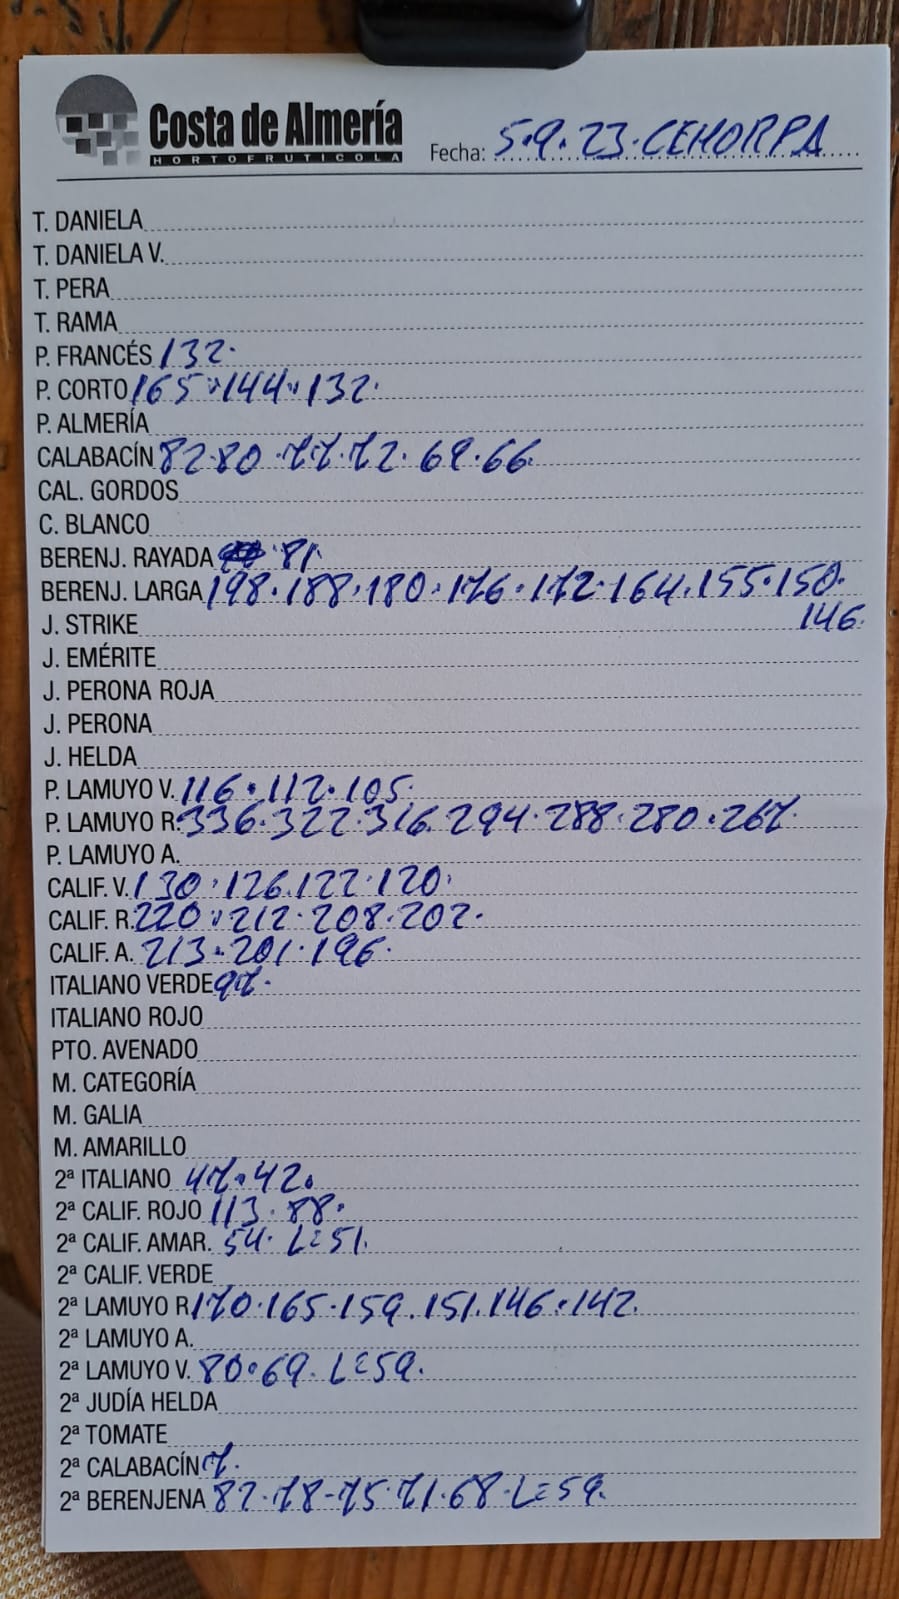 Costa de Almería
HORTOFRUTICOLA
Fecha: 5.9.23.CEHORPA
T. DANIELA
T. DANIELA V.
T. PERA
T. RAMA
P. FRANCÉS 132.
P. CORTO 165.144.132.
P. ALMERÍA
CALABACÍN 82.80.77.72.69.66.
CAL. GORDOS
C. BLANCO
BERENJ. RAYADA 81.
BERENJ. LARGA 198.188.180.176.172.164.155.150.
146.
J. STRIKE
J. EMÉRITE
J. PERONA ROJA
J. PERONA
J. HELDA
P. LAMUYO V. 116.112.105.
P. LAMUYO R. 336.322.316.294.288.280.267.
P. LAMUYO A.
CALIF. V. 130.126.122.120.
CALIF. R. 220.212.208.202.
CALIF. A. 213.201.196.
ITALIANO VERDE 97.
ITALIANO ROJO
PTO. AVENADO
M. CATEGORÍA
M. GALIA
M. AMARILLO
2ª ITALIANO 47.42.
2ª CALIF. ROJO 113.88.
2ª CALIF. AMAR. 54. L=51.
2ª CALIF. VERDE
2ª LAMUYO R 170.165.159.151.146.142.
2ª LAMUYO A.
2ª LAMUYO V. 80.69. L=59.
2ª JUDÍA HELDA
2ª TOMATE
2ª CALABACÍN 7.
2ª BERENJENA 82.78-75.71.68.L=59.